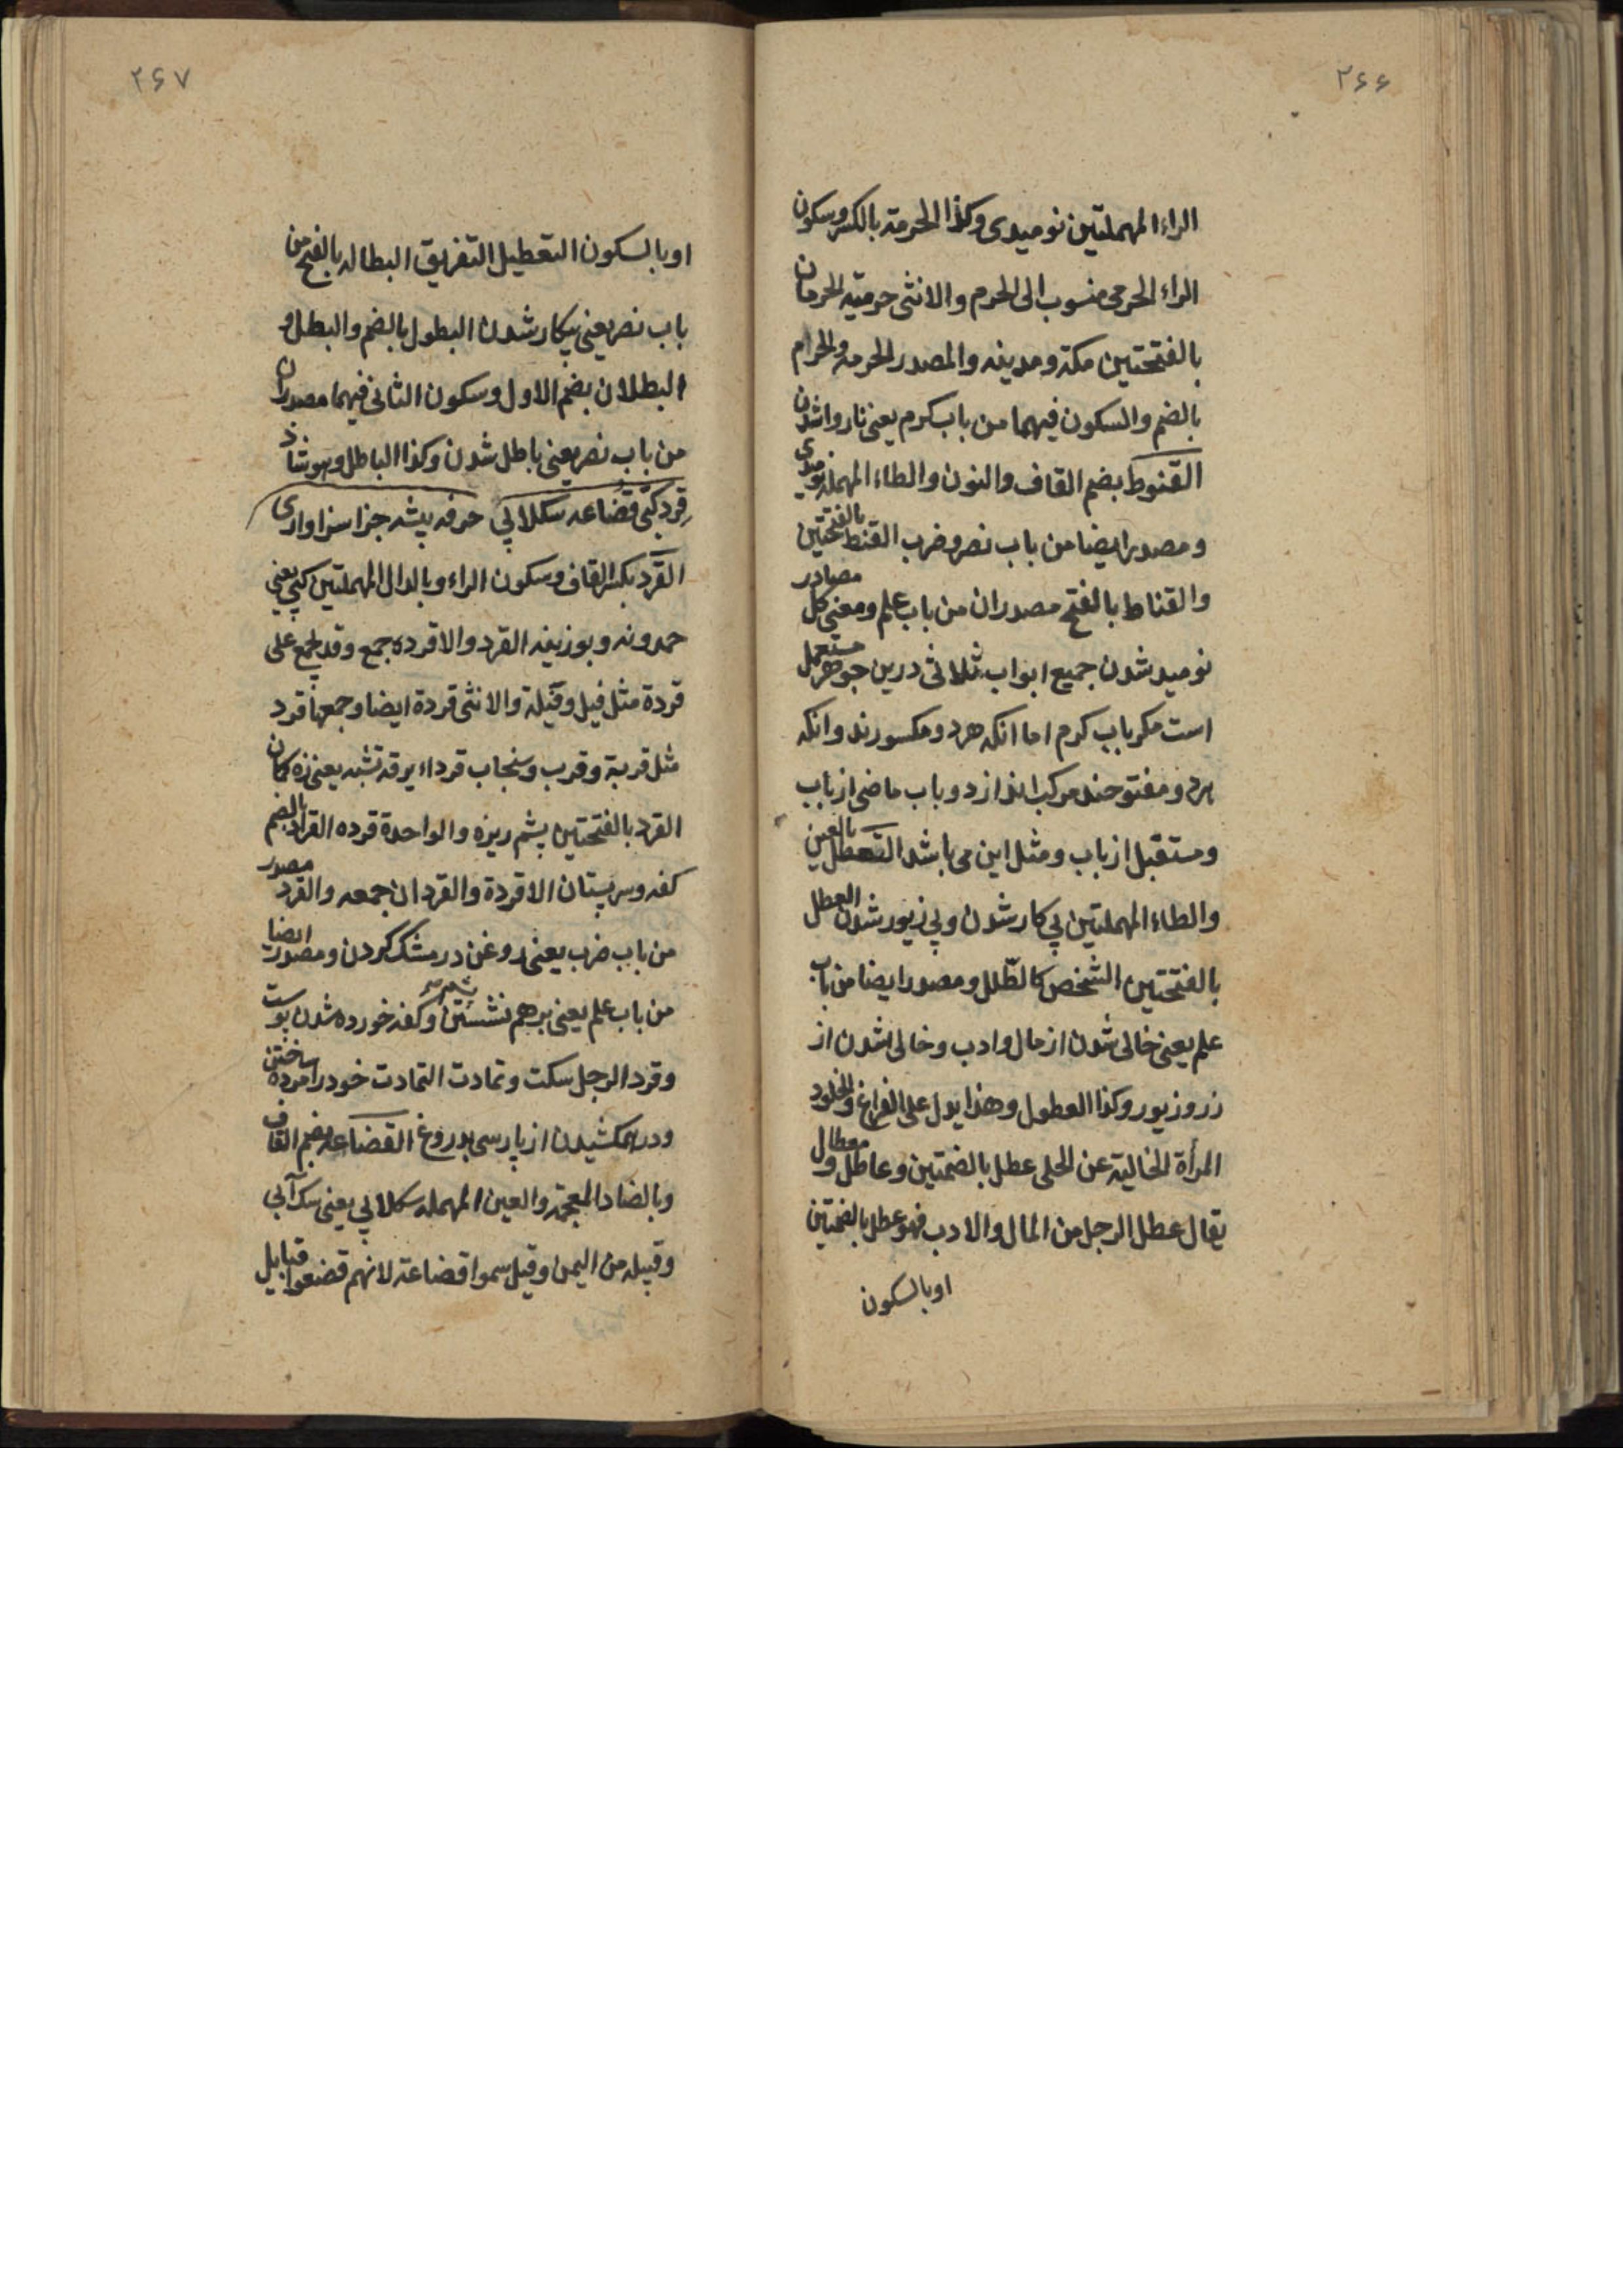 ۲۶۶
الراء المهملتین نومیدی وکذا الحرمة بالکسر وسکون
الراء الحرمی منسوب الی الحرم والانثی حرمیة الحرمان
بالفتحتین مکة ومدینه والمصدر الحرمه والحرام
بالضم والسکون فیهما من باب کرم یعنی ناروا شدن
القنوط بضم القاف والنون والطاء المهمله نومیدی
ومصدر ایضا من باب نصر وضرب القنط بالفتحتین
والقناط بالفتح مصدران من باب علم ومعنی کل مصادر
نومید شدن جمیع ابواب ثلاثی درین جوهر مستعمل
است مکر باب کرم اما انکه هر دو مکسورند وانکه
هر دو مفتوحند مرکب اند از دو باب ماضی از باب
ومستقبل از باب ومثل این می باشد التعطل بالعین
والطاء المهملتین بی کار شدن وبی زیور شدن العطل
بالفتحتین الشخص کالطلل ومصدر ایضا من باب
علم یعنی خالی شدن از مال وادب وخالی شدن از
زر وزیور وکذا العطول وهذا یدل علی الفراغ والخلود
المرأة الخالیة عن الحلی عطل بالضمتین وعاطل ومعطال
یقال عطل الرجل من المال والادب فهو عطل بالضمتین
اوبالسکون
۲۶۷
اوبالسکون التعطیل التفریق البطاله بالفتح من
باب نصر یعنی بیکار شدن البطول بالضم والبطل و
البطلان بضم الاول وسکون الثانی فیهما مصدران
من باب نصر یعنی باطل شدن وکذا الباطل وهو شاذ
قرد کپی قضاعه سکلابی حرفه پیشه جزا سزاواری
القرد بکسر القاف وسکون الراء وبالدال المهملتین کپی یعنی
حمدونه وبوزینه القرد والاقرده جمع وقد یجمع علی
قردة مثل فیل وفیلة والانثی قردة ایضا وجمعها قرد
مثل قربة وقرب وسنجاب قرداء یرقة تشبه یعنی زه کمان
القرد بالفتحتین پشم ریزه والواحدة قرده القراد بالضم
کفه وسر پستان الاقردة والقردان جمعه والقرد مصدر
من باب ضرب یعنی روغن در مشک کردن ومصدر ایضا
من باب علم یعنی بر هم نشستن وکفه خورده شدن پوست
وقرد الرجل سکت وتمادت التمادت خود را مرده ساختن
ودرهم کشیدن از پارسی بدروغ القضاعه بضم القاف
وبالضاد المعجمة والعین المهمله سکلابی یعنی سک آبی
وقبیله من الیمن وقیل سموا قضاعة لانهم قضعوا قبایل